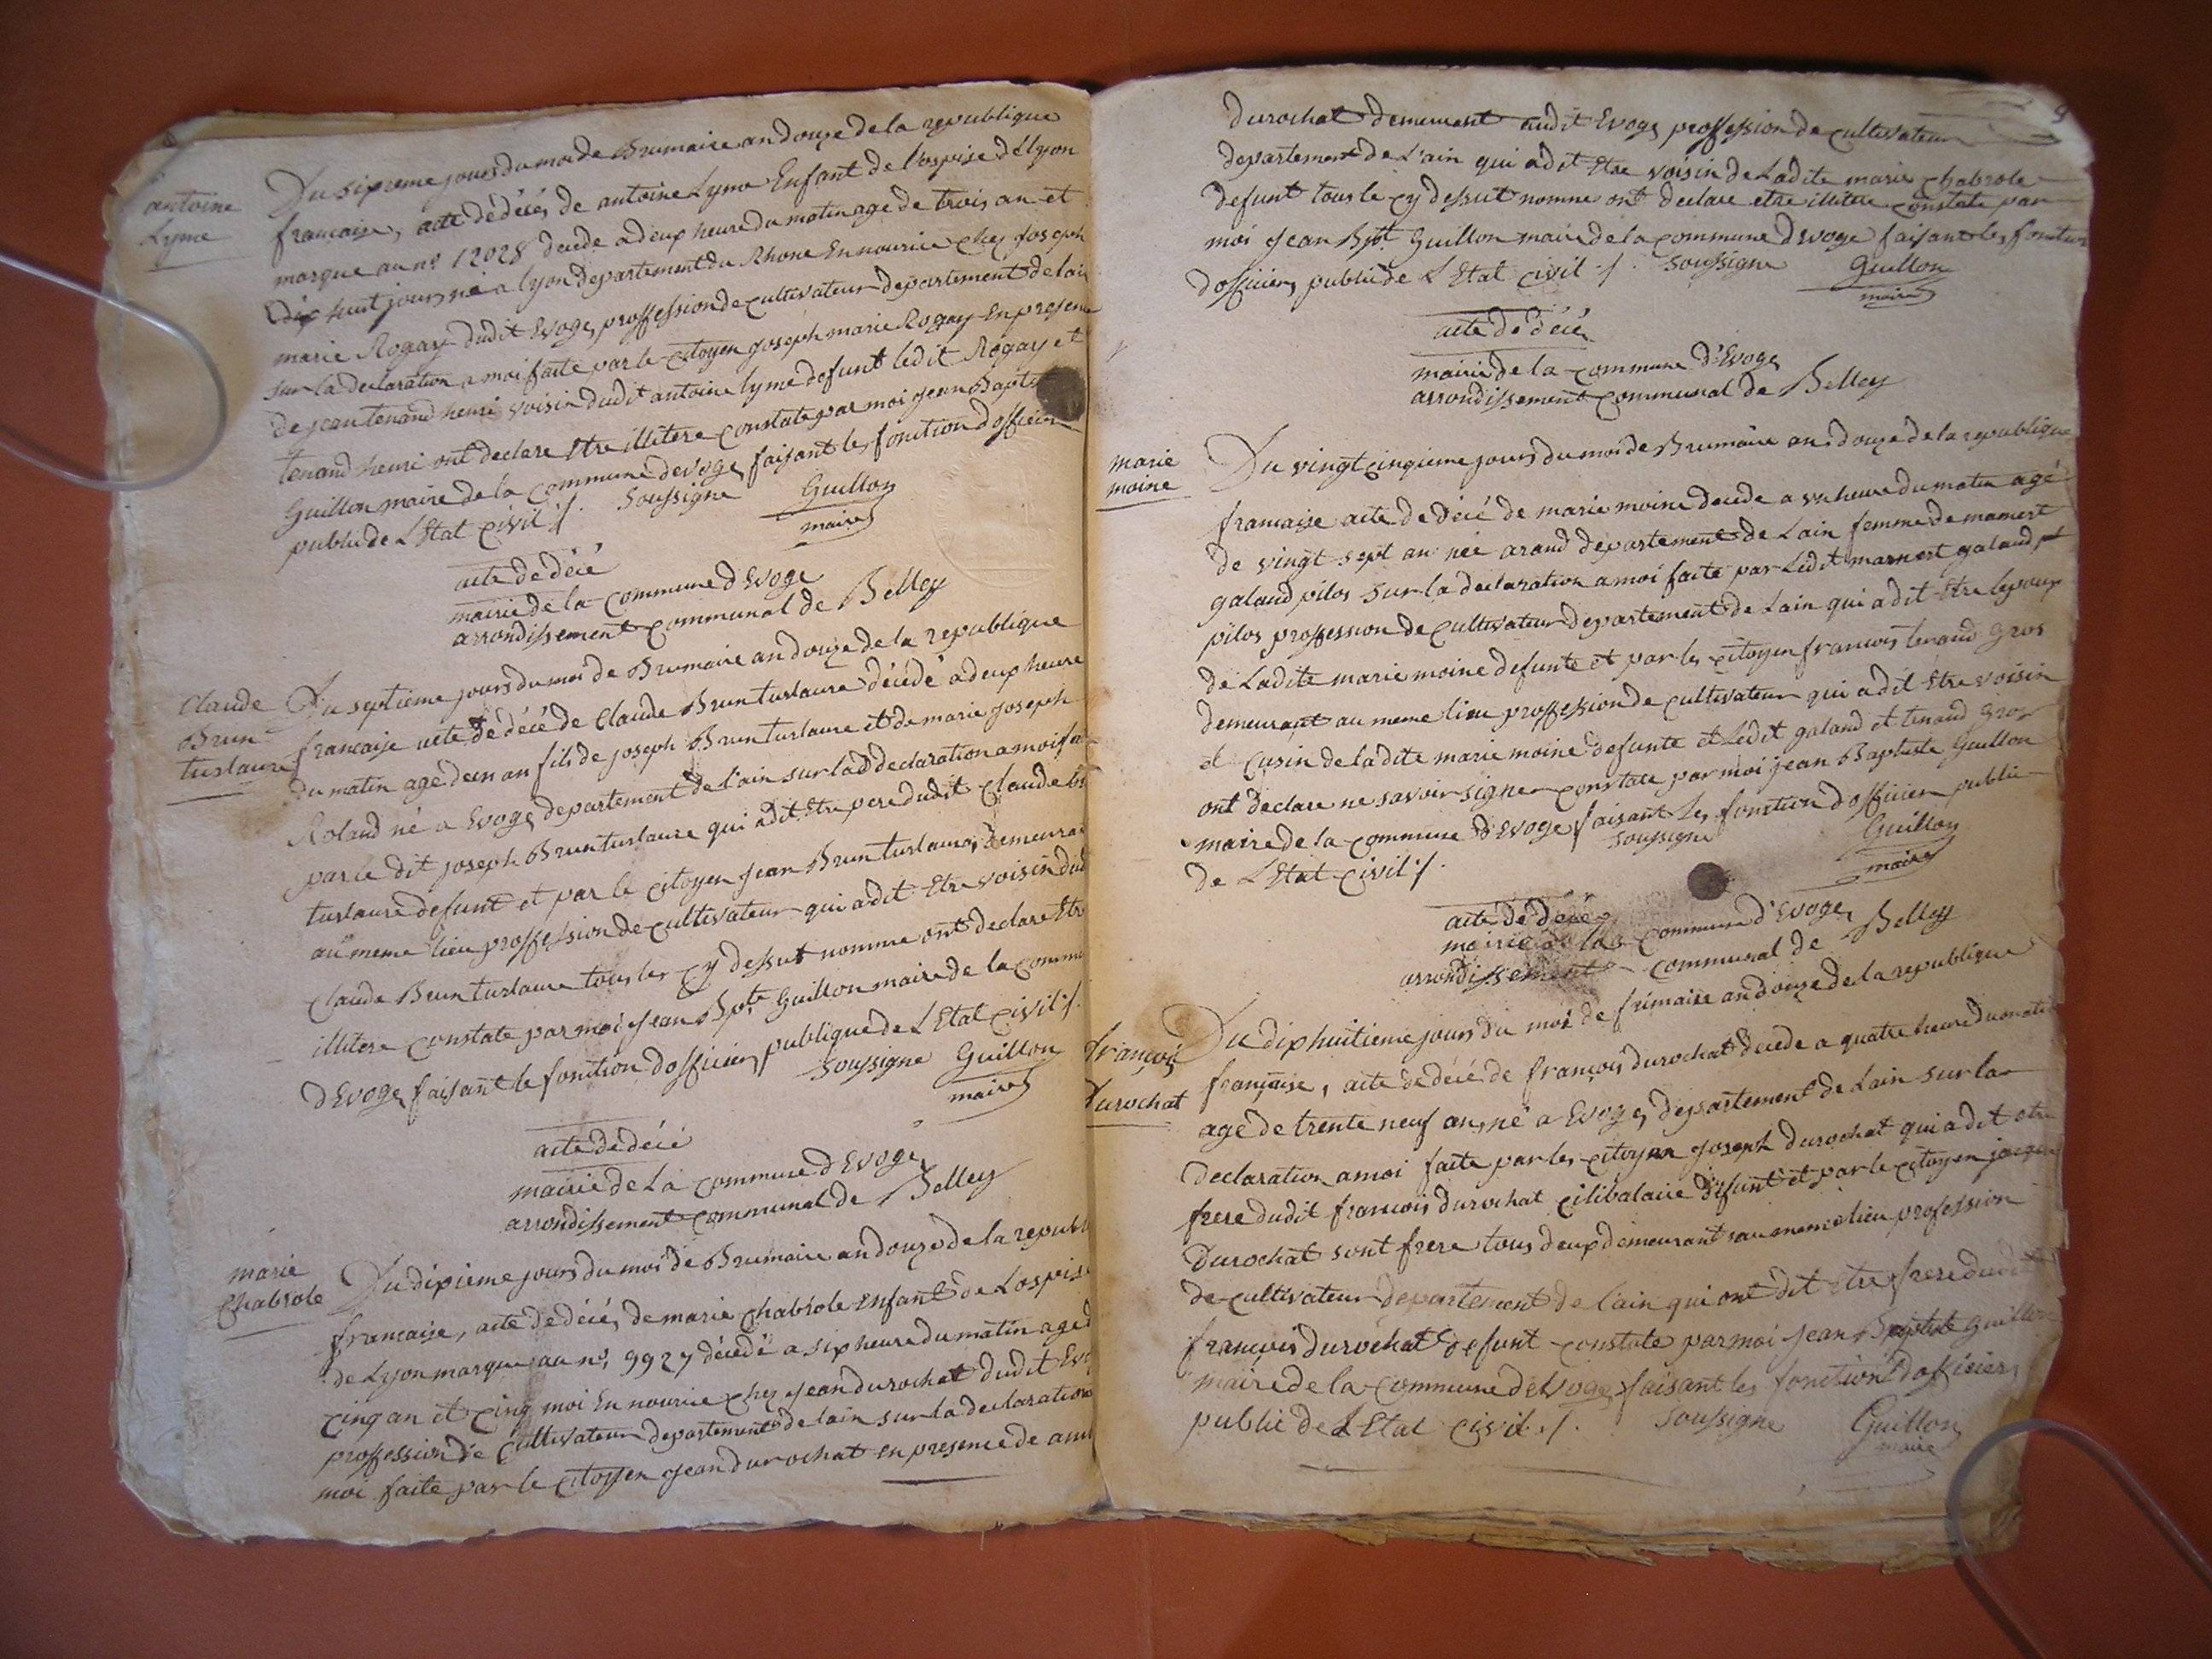 antoine
Lyme
Du sixieme jours du moi de Brumaire an douze de la republique
francaise, acte dédécés de antoine Lyme Enfant de l'ospise de Lyon
marque au no 12028 decede a deux heure du matin age de trois an et
dix huit jours, né a lyon departement du Rhone En nourice chez joseph
marie Rogay dudit Evoges proffession de cultivateur departement de lain
sur la declaration a moi faite par le citoyen joseph marie Rogay En presence
de jean tenand henri voisin dudit antoine lyme defunt ledit Rogay et
tenand henri ont declare Etre illitere constate par moi jean Baptiste
Guillon maire de la commune devoges faisant les fonction dofficier
public de L Etat civil ·/. Soussigne Guillon
maire
acte de décé
mairie de la commune d'Evoge
arrondissement communal de Belley
Claude
Brun
turlaure
Du septieme jours du moi de Brumaire an douze de la republique
francaise acte de décé de Claude Brun turlaure décédé a deux heure
du matin age dun an fils de joseph Brun turlaure et de marie joseph
Roland né a Evoges departement de l'ain sur la declaration a moi fa
par le dit joseph Brun turlaure qui a dit Etre pere dudit claude
turlaure defunt et par le citoyen jean Brun turlaure, demeura
au meme lieu proffession de cultivateur qui a dit Etre voisin dud
claude Brun turlaure tous les cy dessut nomme ont declare Etre
illitere constate par moi jean Bpte Guillon maire de la commu
d'Evoges faisant le fonction dofficier publique de L Etat civil ·/.
Soussigne Guillon
maire
acte de décé
mairie de la commune d'Evoges
arrondissement communal de Belley
marie
Chabrole
Du dixieme jours du moi de Brumaire an douze de la republi
francaise, acte de décés de marie Chabrole Enfant de Lospise
de Lyon marque au no 9927 décedé a six heure du matin age d
cinq an et cinq moi En nourice chez jean durochat dudit Evo
proffession de cultivateur departement de lain sur la declaration
moi faite par le citoyen jean durochat en presence de
durochat demeurant audit Evoges proffession de cultivateur
departement de L'ain qui a dit Etre voisin de Ladite marie chabrole
defunt tous le cy dessut nomme ont declare etre illitere constate par
moi jean Bpt Guillon maire de la commune d'Evoge faisant les fonction
dofficiers public de L Etat civil ·/. Soussigne Guillon
maire
acte de décé
mairie de la commune d'Evoges
arrondissement communal de Belley
marie
moine
Du vingt cinqieme jours du moi de Brumaire an douze de la republique
francaise acte de décé de marie moine decede a un heure du matin agé
de vingt sept an née a rand departement de Lain femme de mamert
galand pilos Sur la declaration a moi faite par Ledit mamert galand
pilos proffession de cultivateur departement de Lain qui a dit Etre lepoux
de Ladite marie moine defunte et par les citoyen francois tenand gros
demeurant au meme lieu proffession de cultivateur qui a dit Etre voisin
et cusin de ladite marie moine defunte et Ledit galand et tenand gros
ont declare ne savoir signer constate par moi jean Baptiste Guillon
maire de la commune d'Evoge faisant Les fonction dofficier public
de L Etat civil ·/. Soussigne Guillon
maire
acte de décé
mairie de la commune d'Evoges
arrondissement communal de Belley
françois
Durochat
Du dix huitieme jours du moi de frimaire an douze de la republique
française, acte de décé de françois durochat décede a quatre heure du matin
agé de trente neuf an, né a Evoges departement de Lain sur la
declaration a moi faite par les citoyen joseph durochat qui a dit etre
frere dudit francois durochat cilibataire defunt et par le citoyen
Durochat sont frere tous deux demeurant au meme lieu profession
de cultivateur departement de l'ain qui ont dit Etre frere dudit
françois durochat defunt constate par moi jean Baptiste guillon
maire de la commune d'Evoges faisant les fonction dofficiers
public de L Etat civil ·/. Soussigne Guillon
maire